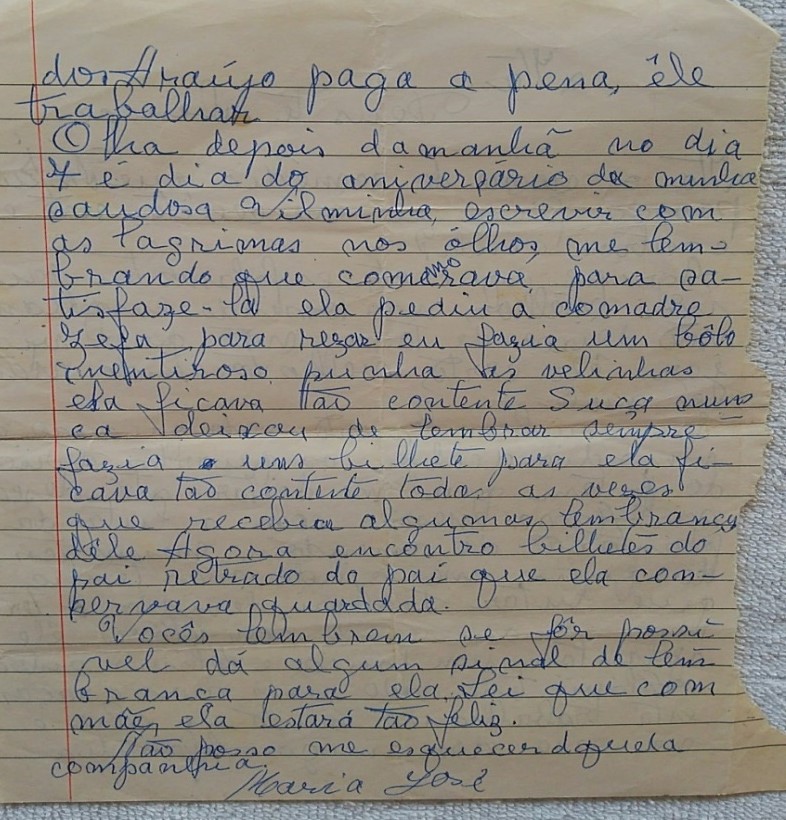 dos Araújo paga a pena, êle
trabalhar
Olha depois damanhã no dia
7 é dia do aniverçário da minha
saudosa Vilminha, escrevir com
as lagrimas nos ólhos, me lem-
brando que comemorava para sa-
tisfaze-la ela pediu a comadre
Zefa para rezar eu fazia um bôlo
mentiroso punha as velinhas
ela ficava tão contente Suca nun
ca deixou de lembrar sempre
fazia um bilhete para ela fi-
cava tão contente todas as vezes
que recebia algumas lembrança
dele Agora encontro bilhetes do
pai retrado do pai que ela con-
servava guardada.
Vocês lembrem se fôr possi
vel dá algum sinal de lem
brança para ela, sei que com
mãe, ela estará tão feliz.
Não posso me esquecer daquela
companhia.
Maria José